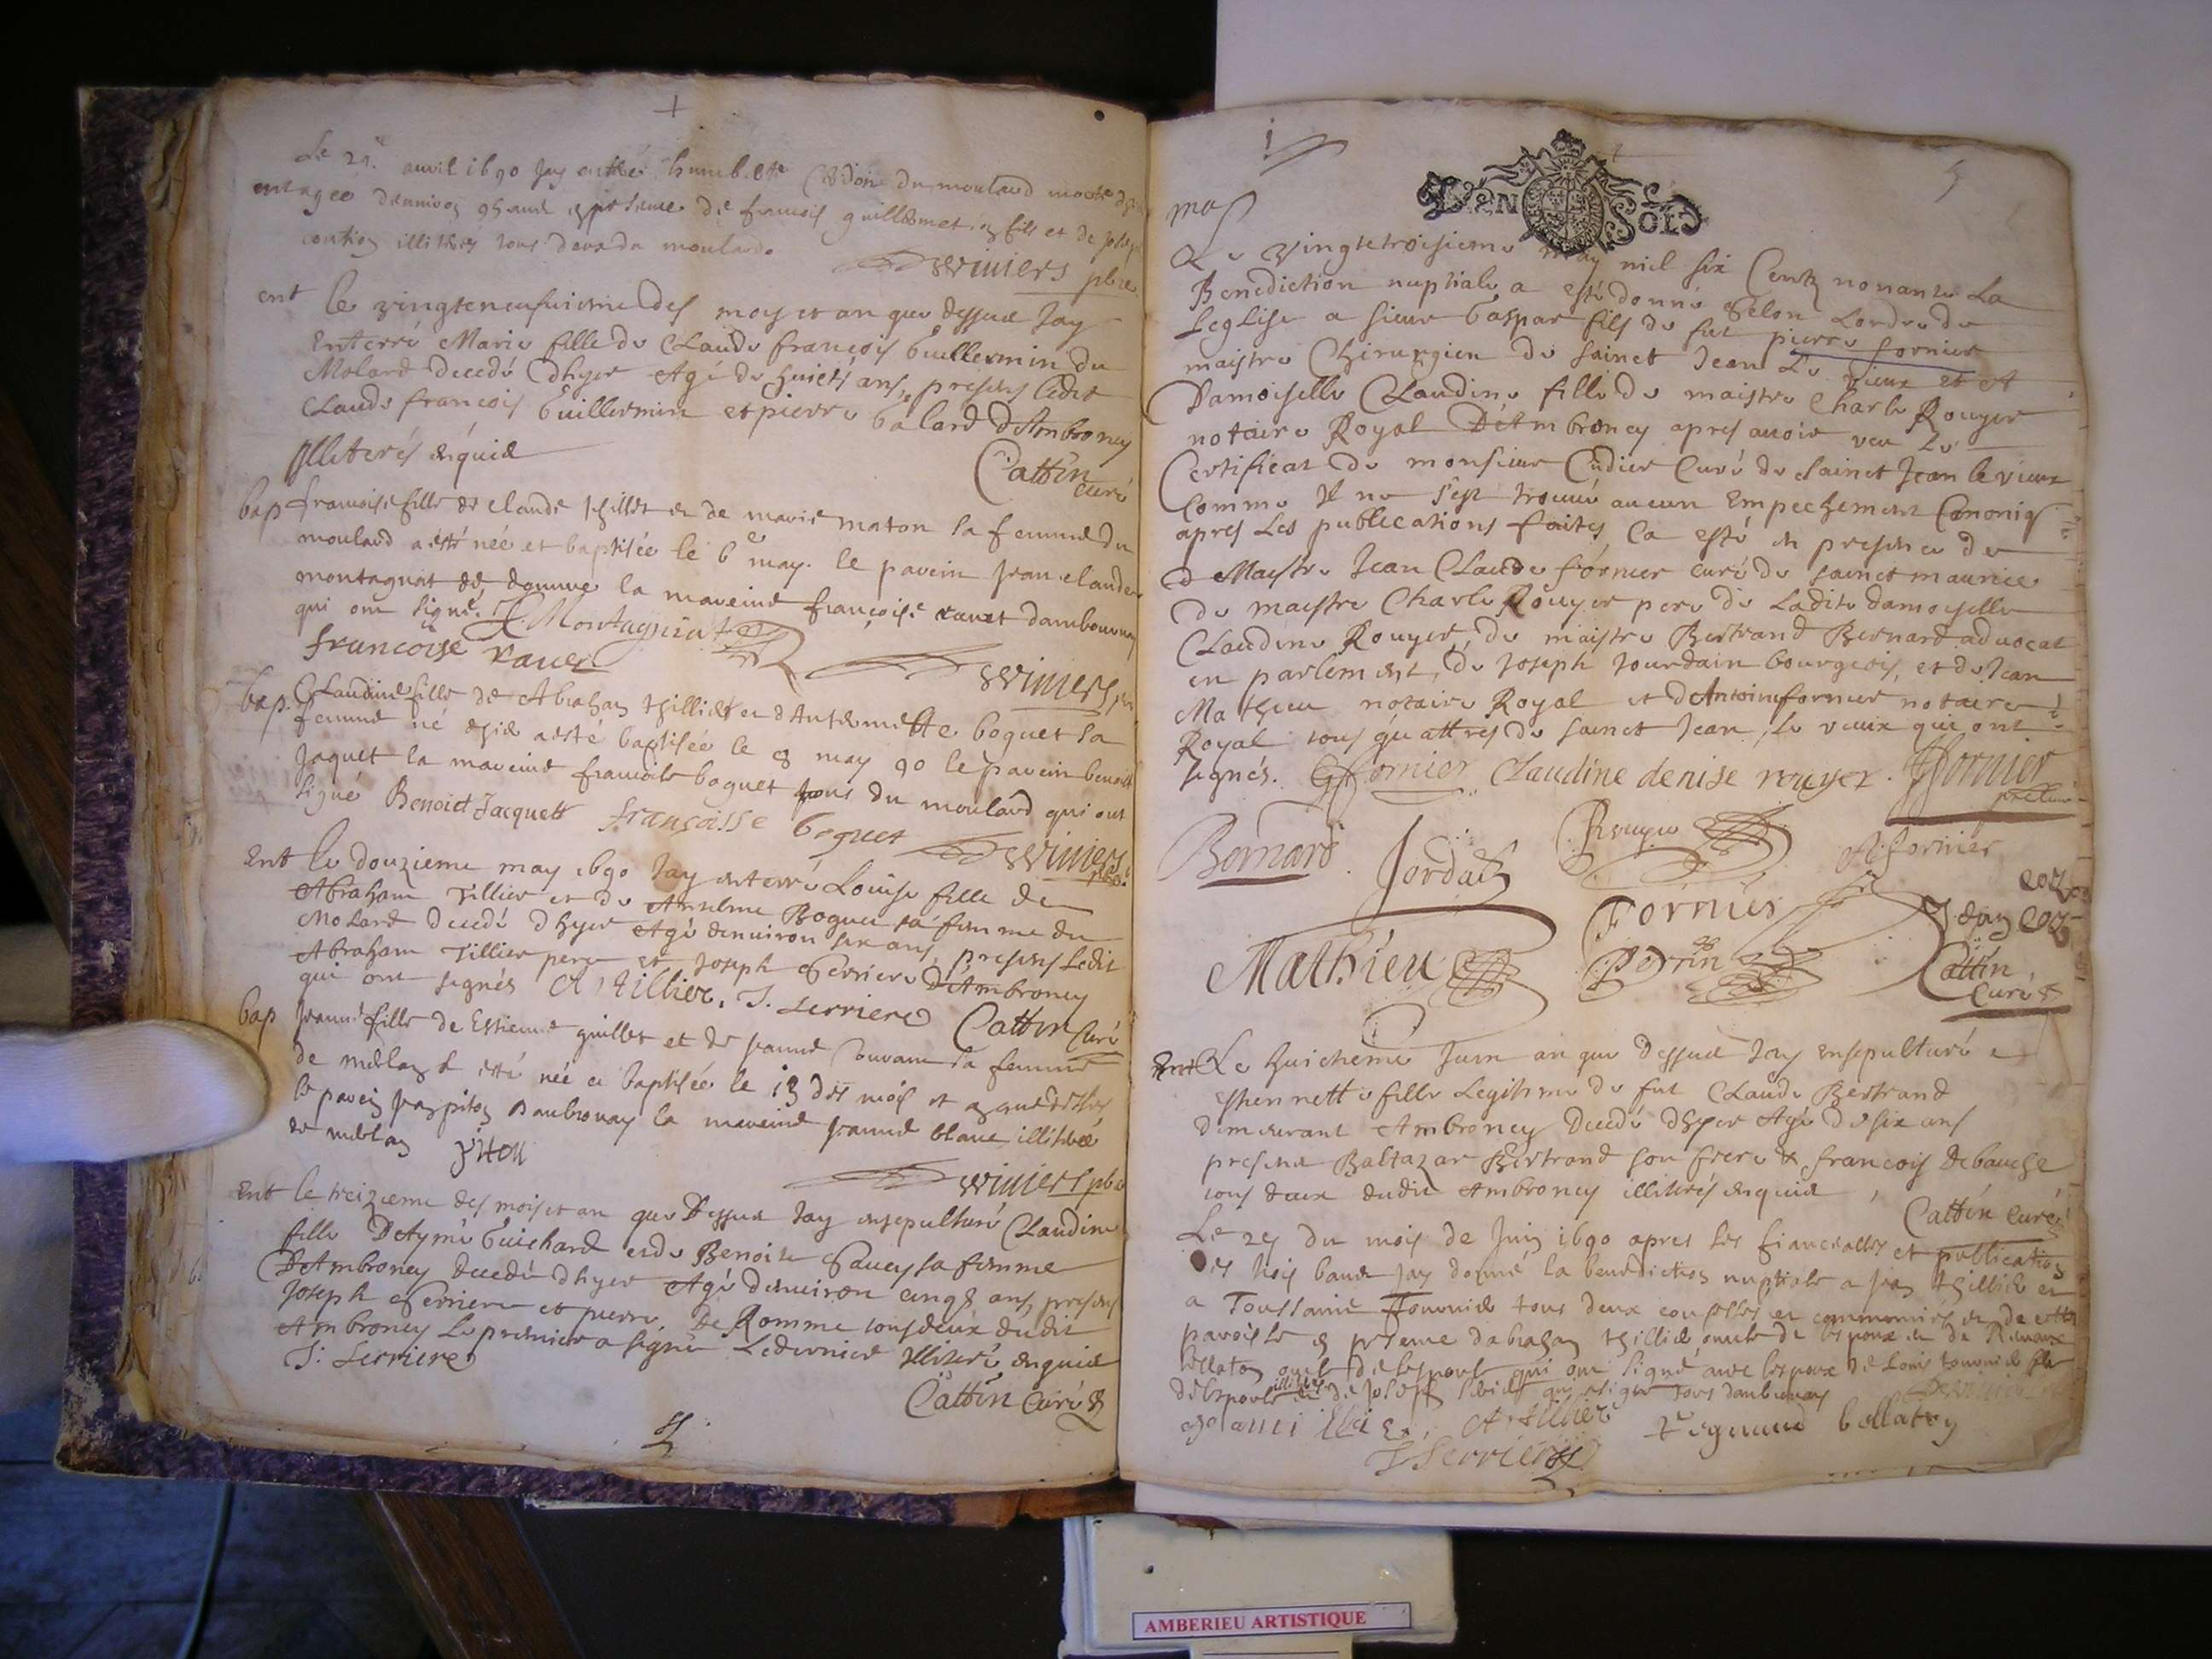 Le 21e avril 1690 Jay enterré humberte du moulard
aagee denviron ans en presence de francois guillermet son fils et de
illitérés tous deux du moulard.
Winiers pbre
ent le vingtneufuieme des moys et an que dessus Jay
Enterré Marie fille de Claude françois Guillermin du
Molard decedé dhyer Agé de huict ans, presens ledit
Claude françois Guillermin et pierre balard dAmbroney
Illiterés enquis
Cattin curé
bap francoise fille de claude thillier et de marie maton sa femme du
moulard a esté née et baptisée le 6e may. le parein Jean claude
montagnat de douvre la mareine françoise ravet dambournay
qui ont signé. JC. Montagniat
francoise raver
Winiers pbr
bap. Claudine fille de Abraham thillier et dAnthemette boguet sa
femme né hier a esté baptisée le 8 may 90 le parein benoist
Jaquet la mareine francoise boguet tous du moulard qui ont
signé Benoict Jacquett françoisse boguet
Winiers pbr
Ent le douzieme may 1690 Jay enterré Louise fille de
Abraham Tillier et de Anselme Boguet sa femme du
Molard decedé dhyer Agé denviron six ans, presens Ledit
Abraham Tillier pere et Joseph Serriere dAmbroney
qui ont signés A, tillier. J. Serriere Cattin Curé
bap Jeanne fille de Estienne guillet et de Jeanne sa femme
de merlan a esté née et baptisée le 13 des mois et an que dessus
le parein Jean piton dambronay la mareine Jeanne blanc illiterée
de merlan piton
Winiers pbr
Ent le treizieme des mois et an que Dessus Jay ensepulturé Claudine
fille Detymé Guichard et de Benoite sa femme
DAmbroney decedé dhyer Agé denviron cinqs ans, presens
Joseph Serriere et pierre de Romme tous deux dudit
Ambroney Le premier a signé Ledernier Illiteré enquis
J: Serriere
Cattin Curé
DEN SOL
Le Vingtetroisieme May mil six Cents nonante La
Benediction nuptiale a esté donné Selon Lordre de
Leglise a sieur Gaspar fils de fut pierre fornier
maistre Chirurgien de sainct Jean Le vieux et A
Damoiselle Claudine fille de maistre Charle Rouyer
notaire Royal DAmbroney apres avoir veu Le
Certificat de monsieur Cudier Curé de sainct Jean le vieux
Comme Il ne s'est trouvé aucun Empechement Canoniq
apres Les publications faites, Ca esté en presence de
Maystre Jean Claude fornier curé de sainct maurice
De maistre Charle Rouyer pere de Ladite damoiselle
Claudine Rouyer, de maistre Bertrand Bernard advocat
en parlement, de Joseph Jourdain bourgeois, et de Jean
Mathieu notaire Royal et dAntoine fornier notaire
Royal tous quattres de sainct Jean le vieux qui ont
signés. Gfornier Claudine denise rouyer. Jfornier
Bernard Jordain Rouyer A fornier
Fornier
Mathieu Perrin Cattin
Curé
Ent Le huictieme Juin an que dessus Jay ensepulturé
thennette fille Legitime de fut Claude Bertrand
demeurant Ambroney decedé dhyer Agé de six ans
presens Baltazar Bertrand son frere & francois Debauge
tous deux dudit Ambroney illiterés enquis,
Cattin curé
Le 25 du mois de Juin 1690 apres les fianceailles et publication
des trois bans Jay donné la benediction nuptiale a Jean thillier et
a Toussaine Tournier tous deux confessés et communiés et de cette
paroisse en presence dabraham thillier oncle de lespoux et de
bellaton oncle de lespouse qui ont signé avec lespoux de Louis tournier
de lespouse illiteré et de Joseph qui a signé tous dambronay
A tillier Regnaud bellaton
J Serriere
AMBERIEU ARTISTIQUE